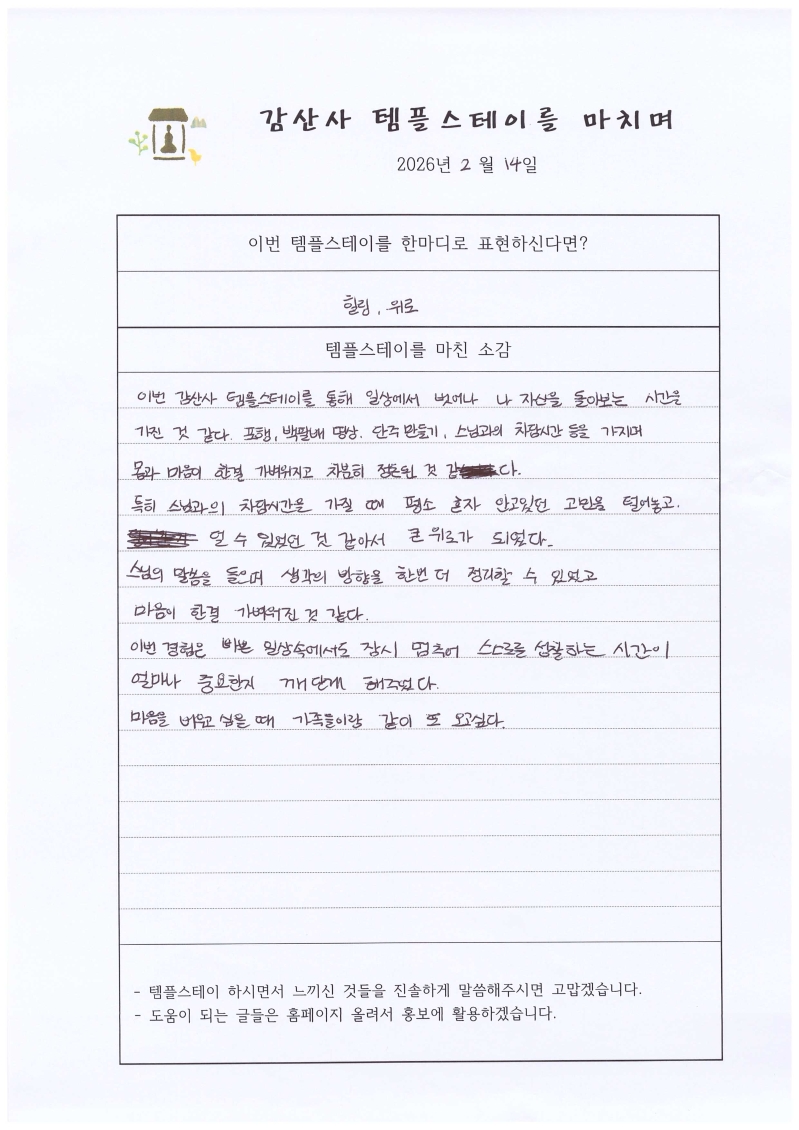 감산사 템플스테이를 마치며
2026년 2 월 14일
이번 템플스테이를 한마디로 표현하신다면?
힐링, 위로
템플스테이를 마친 소감
이번 감산사 템플스테이를 통해 일상에서 벗어나 나 자신을 돌아보는 시간을
가진 것 같다. 포행, 백팔배 명상, 단주 만들기, 스님과의 차담시간 등을 가지며
몸과 마음이 한결 가벼워지고 차분히 정돈된 것 같다.
특히 스님과의 차담시간을 가질 때 평소 혼자 안고있던 고민을 털어놓고,
얻 수 있었던 것 같아서 큰 위로가 되었다.
스님의 말씀을 들으며 생각의 방향을 한번 더 정리할 수 있었고
마음이 한결 가벼워진 것 같다.
이번 경험은 바쁜 일상속에서도 잠시 멈추어 스스로를 성찰하는 시간이
얼마나 중요한지 깨닫게 해주었다.
마음을 비우고 싶을 때 가족들이랑 같이 또 오고싶다.
- 템플스테이 하시면서 느끼신 것들을 진솔하게 말씀해주시면 고맙겠습니다.
- 도움이 되는 글들은 홈페이지 올려서 홍보에 활용하겠습니다.